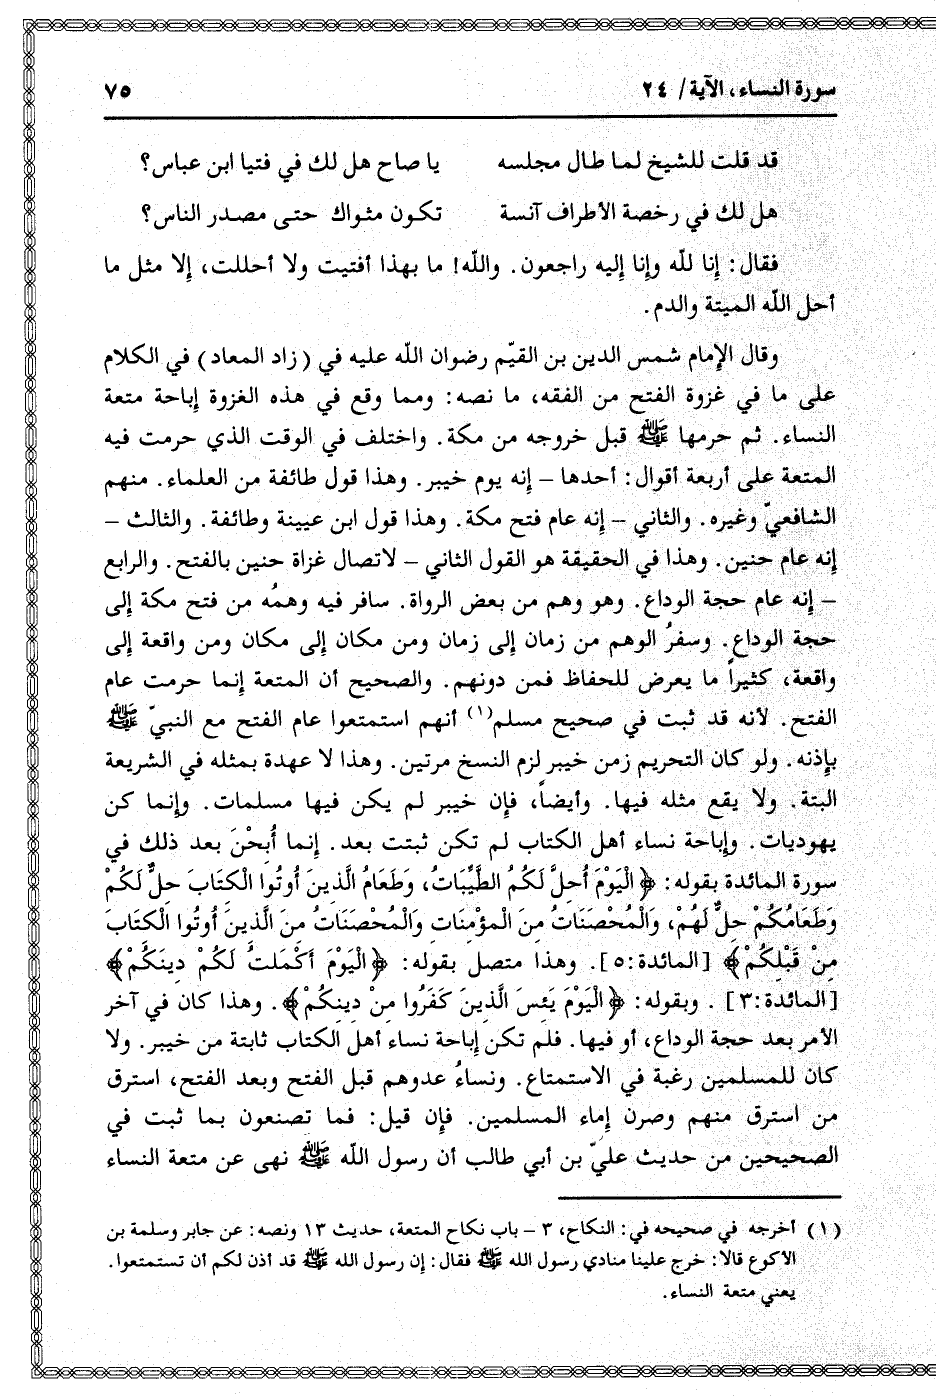 سورة النساء، الآية/ ٢٤ ٧٥
قد قلت للشيخ لما طال مجلسه يا صاح هل لك في فتيا ابن عباس؟
هل لك في رخصة الأطراف آنسة تكون مثواك حتى مصدر الناس؟
فقال: إنا لله وإنا إليه راجعون. والله! ما بهذا أفتيت ولا أحللت، إلا مثل ما
أحل الله الميتة والدم.
وقال الإمام شمس الدين بن القيّم رضوان الله عليه في (زاد المعاد) في الكلام
على ما في غزوة الفتح من الفقه، ما نصه: ومما وقع في هذه الغزوة إباحة متعة
النساء. ثم حرمها ﷺ قبل خروجه من مكة. واختلف في الوقت الذي حرمت فيه
المتعة على أربعة أقوال: أحدها – إنه يوم خيبر. وهذا قول طائفة من العلماء. منهم
الشافعيّ وغيره. والثاني – إنه عام فتح مكة. وهذا قول ابن عيينة وطائفة. والثالث –
إنه عام حنين. وهذا في الحقيقة هو القول الثاني – لاتصال غزاة حنين بالفتح. والرابع
– إنه عام حجة الوداع. وهو وهم من بعض الرواة. سافر فيه وهمُه من فتح مكة إلى
حجة الوداع. وسفرُ الوهم من زمان إلى زمان ومن مكان إلى مكان ومن واقعة إلى
واقعة، كثيراً ما يعرض للحفاظ فمن دونهم. والصحيح أن المتعة إنما حرمت عام
الفتح. لأنه قد ثبت في صحيح مسلم(١) أنهم استمتعوا عام الفتح مع النبيّ ﷺ
بإذنه. ولو كان التحريم زمن خيبر لزم النسخ مرتين. وهذا لا عهدة بمثله في الشريعة
البتة. ولا يقع مثله فيها. وأيضاً، فإن خيبر لم يكن فيها مسلمات. وإنما كن
يهوديات. وإباحة نساء أهل الكتاب لم تكن ثبتت بعد. إنما أُبِحْنَ بعد ذلك في
سورة المائدة بقوله: ﴿الْيَوْمَ أُحِلَّ لَكُمُ الطَّيِّبَاتُ، وَطَعَامُ الَّذِينَ أُوتُوا الْكِتَابَ حِلٌّ لَكُمْ
وَطَعَامُكُمْ حِلٌّ لَهُمْ، وَالْمُحْصَنَاتُ مِنَ الْمُؤْمِنَاتِ وَالْمُحْصَنَاتُ مِنَ الَّذِينَ أُوتُوا الْكِتَابَ
مِنْ قَبْلِكُمْ﴾ [المائدة:٥]. وهذا متصل بقوله: ﴿الْيَوْمَ أَكْمَلْتُ لَكُمْ دِينَكُمْ﴾
[المائدة:٣] . وبقوله: ﴿الْيَوْمَ يَئِسَ الَّذِينَ كَفَرُوا مِنْ دِينِكُمْ﴾. وهذا كان في آخر
الأمر بعد حجة الوداع، أو فيها. فلم تكن إباحة نساء أهل الكتاب ثابتة من خيبر. ولا
كان للمسلمين رغبة في الاستمتاع. ونساءُ عدوهم قبل الفتح وبعد الفتح، استرق
من استرق منهم وصرن إماء المسلمين. فإن قيل: فما تصنعون بما ثبت في
الصحيحين من حديث عليّ بن أبي طالب أن رسول الله ﷺ نهى عن متعة النساء
(١) أخرجه في صحيحه في: النكاح، ٣ – باب نكاح المتعة، حديث ١٣ ونصه: عن جابر وسلمة بن
الأكوع قالا: خرج علينا منادي رسول الله ﷺ فقال: إن رسول الله ﷺ قد أذن لكم أن تستمتعوا.
يعني متعة النساء.